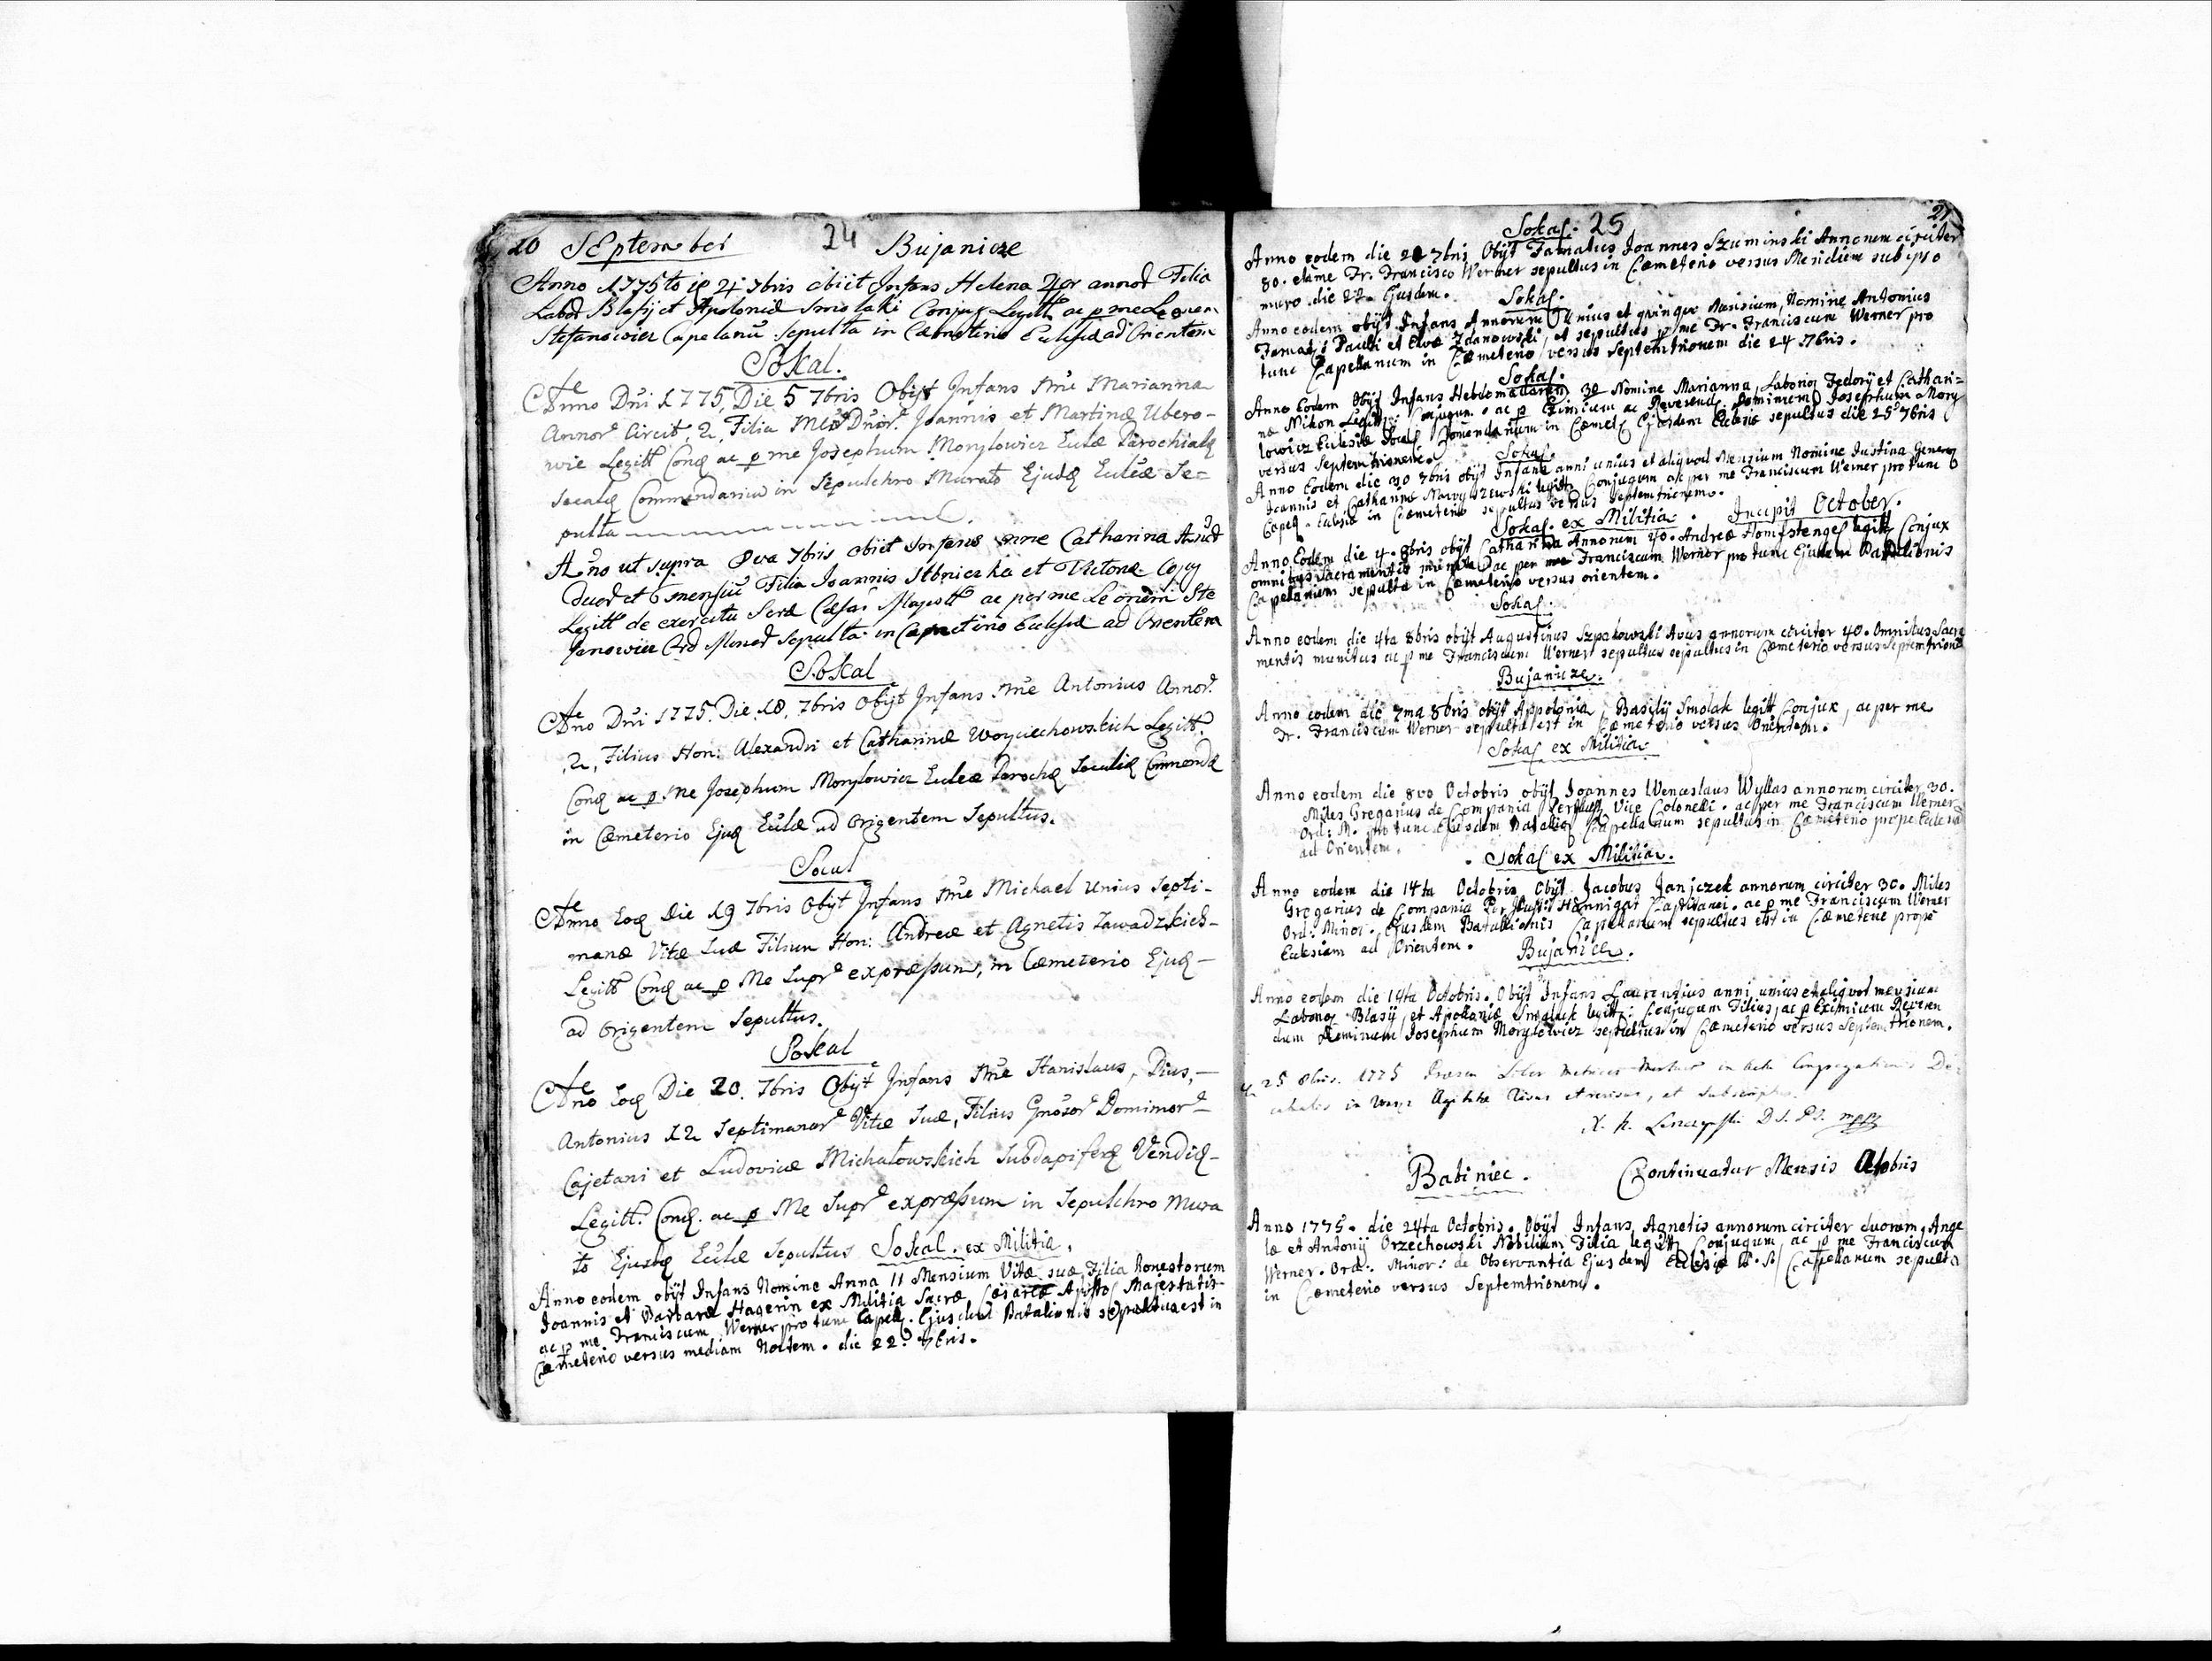 20 SEptember 24 Bujanicze
Anno 1775to ie 4 7bris obiit Infans Helena 4or annoꝝ Filia
Laboꝝ Blasij et Apoloniæ Smolaki Conjug Legitt ac p me Leonem
Stefanowicz Capelanū sepulta in Cæmeterio Eccłesiæ ad Orientem
Sokal.
Anno Dni 1775, Die 5 7bris Obijt Infans Nne Marianna
Annor Circit, 2, Filia Dnor. Joannis et Martinæ Ubero-
wie Legitt Conq ac p me Josephum Morylowicz Eulæ Parochialq
Socalq Commendariu in Sepulchro Murato Ejudq Eulæ Se=
pulta
Ano ut supra 8va 7bris obiit Infans nne Catharina
duor et 6 mensiū Filia Joannis Stbniczka et Victoriæ Cojg
Legitt de exercitu Scræ Cæsar Majestt ac per me Leonem Ste
fanowicz Ord Minor Sepulta in Cæmeterio Eccłesiæ ad Orientem
Sokal
Ano Dni 1775. Die 18. 7bris Obijt Infans Nne Antonius Annor.
2, Filius Hon: Alexandri et Catharinæ Woyciechowskich Legitt.
Conq ac p Me Josephum Morylowicz Eulæ Parochq Socaliq Commendq
in Cæmeterio Ejuq Eulæ ad Origentem Sepultus.
Socal
Anno Eoq Die 19 7bris Obijt Infans Nne Michael Unius Septi-
manæ Vitæ Suæ Filius Hon: Andreæ et Agnetis Zawadzkich-
Legitt Conq ac p Me Supr expræssum, in Cæmeterio Ejuq-
ad Origentem Sepultus.
Sokal
Ano Eoq Die 20. 7bris Obijt Infans Nne Stanislaus, Pius,-
Antonius 12 Septimanar Vitæ Suæ, Filius Gnosor Dominor-
Cajetani et Ludovicæ Michałowskich Subdapiferq Vendiq-
Legitt. Conq. ac p Me Supr expræssum in Sepulchro Mura
to Ejusdq Eulæ Sepultus Sokal. ex Militia.
Anno eodem obijt Infans Nomine Anna 11 Mensium Vitæ suæ Filia honestorum
Joannis et Barbaræ Hagerin ex Militia Sacræ Cæsareæ Aposto Majestatis
ac p me Franciscum Werner pro tunc Capell. Ejusdem Batalionis sepultus est in
Cæmeterio versus mediam Noctem. die 22. 7bris.
Sokal. 25 21
Anno eodem die 20 7bris Obijt Famatus Joannes Szuminski Annorum circiter
80. Fr. Francisco Werner sepultus in Cæmeterio versus Meridiem sub ipso
muro die 22 Ejusdem.
Sokal.
Anno eodem obijt Infans Annorum unius et quinque Mensium, Nomine Antonius
Pauli et Evæ Zdanowski, et sepultus p me Fr. Franciscum Werner pro
tunc Capellanum in Cæmeterio versus Septemtrionem die 24 7bris.
Sokal.
Anno Eodem Obijt Infans Hebdomadarum 30 Nomine Marianna, Laborios Fedorij et Cathari=
næ Nikon Legitt: Conjugum. ac p Eximium ac Reverend Dominum Josephum Mory
lowicz Eulesiæ Socal Comendarium in Cæmet Ejusdem Eulesiæ sepultus die 25 7bris
versus Septemtrionem.
Sokal.
Anno Eodem die 30 7bris obijt Infans anni unius et aliquod Mensium Nomine Justina Generoq
Joannis et Catharinæ legitt Conjugum ac per me Franciscum Werner pro tunc
Capell. Eulesiæ in Cæmeterio sepultus versus Septemtrionem.
Sokal. ex Militia. Incipit October.
Anno Eodem die 4. 8bris obijt Catharina Annorum 40. Andreæ Homfstengel legitt Conjux
omnibus Sacramentis munita ac per me Franciscum Werner pro tunc Ejusdem Batalionis
Capellanum sepulta in Cæmeterio versus orientem.
Sokal.
Anno eodem die 4ta 8bris obijt Augustinus Szpakowski annorum circiter 40. Omnibus Sacra
mentis munitus ac p me Franciscum Werner sepultus sepultus in Cæmeterio versus Septemtrionē
Bujanicze.
Anno eodem die 7ma 8bris obijt Appolonia, Basilij Smolak legitt Conjux, ac per me
Fr. Franciscum Werner sepulta est in Cæmeterio versus Orientem.
Sokal ex Militia
Anno eodem die 8vo Octobris obijt Joannes Wenceslaus Wyllas annorum circiter 30.
Miles Gregarius de Compania Vice Colonelli. ac per me Franciscum Werner
Ord: M. pro tunc Ejusdem Batalio Capellanum sepultus in Cæmeterio prope Eulesiā
ad Orientem.
Sokal ex Militia.
Anno eodem die 14ta Octobris Obijt Jacobus Janiczek annorum circiter 30. Miles
Gregarius de Compania Hannigar Capitanei. ac p me Franciscum Werner
Ord: Minor. Ejusdem Batallionis Capellanum sepultus est in Cæmeterie prope
Eulesiam ad Orientem.
Bujanicze.
Anno eodem die 19ta Octobris. Obijt Infans Laurentius anni unius et aliquot mensium
Laborios Blasij, et Apolloniæ Smolak legitt: Conjugum Filius, ac p Eximium Reveren
dum Dominum Josephum Morylowicz sepultus in Cæmeterio versus Septemtrionem.
25 8bris. 1775 Præsen Liber Metrices Mortuor in Actu Congregationis De
canalis in Agitatæ Visus et revisus, et subscriptus.
Babiniec. Continuatur Mensis Octobris
Anno 1775. die 24ta Octobris. Obijt Infans, Agnetis annorum circiter duorum, Ange
læ et Antonij Orzechowski Nobilium Filia legitt Conjugum, ac p me Franciscum
Werner. Ord: Minor: de Observantia Ejusdem Eulesiæ Capellanum sepulta
in Cæmeterio versus Septemtrionem.